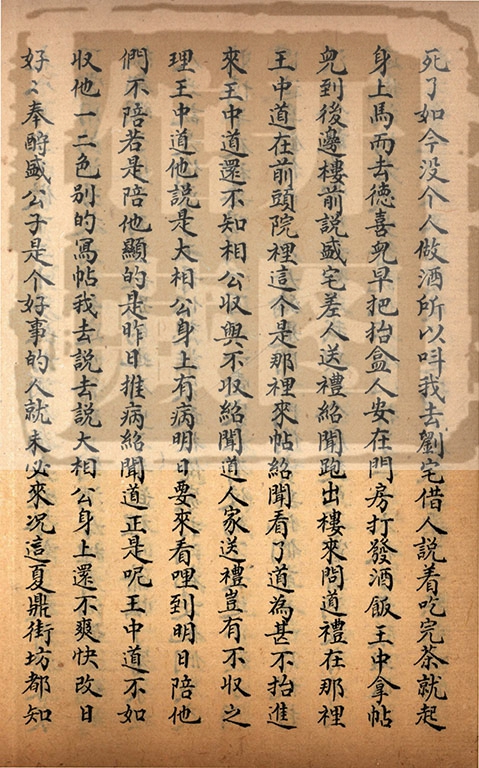 死了如今没个人做酒所以呌我去劉宅借人説着吃完茶就起
身上馬而去德喜兒早把抬盒人安在門房打發酒飯王中拿帖
兒到後邊樓前説盛宅差人送禮紹聞跑出樓來問道禮在那裡
王中道在前頭院裡這个是那裡來帖紹聞看了道為甚不抬進
來王中道還不知相公收與不收紹聞道人家送禮豈有不收之
理王中道他説是大相公身上有病明日要來看哩到明日陪他
們不陪若是陪他顯的是昨日推病紹聞道正是呢王中道不如
收他一二色别的寫帖我去説去説大相公身上還不爽快改日
好〻奉酧盛公子是个好事的人就未必來况這夏鼎街坊都知